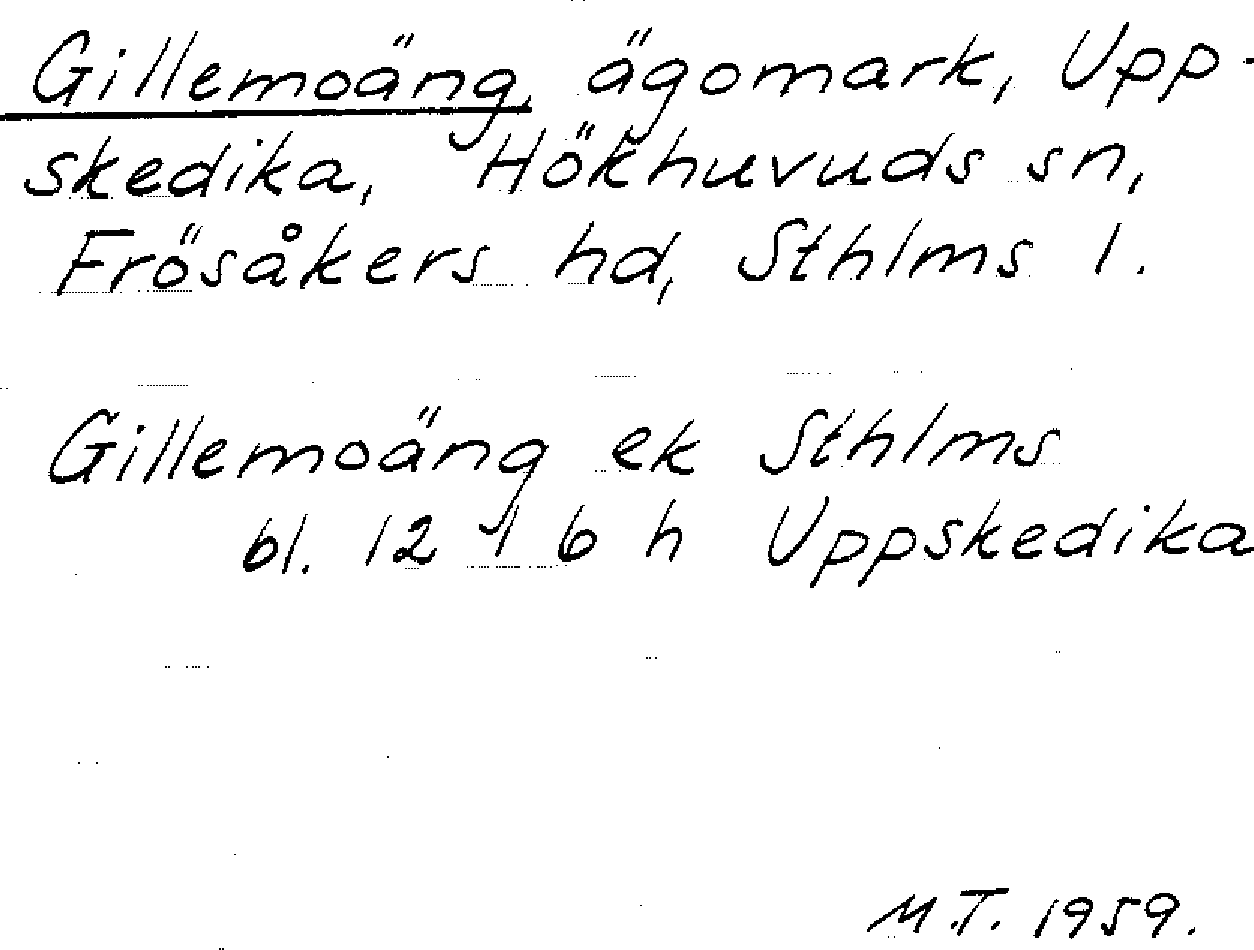 Gillemoäng, ägomark, Upp-
skedika, Hökhuvuds sn,
Frösåkers hd, Sthlms l.
Gillemoäng ek Sthlms
bl. 12 I 6 h Uppskedika
M.T. 1959.